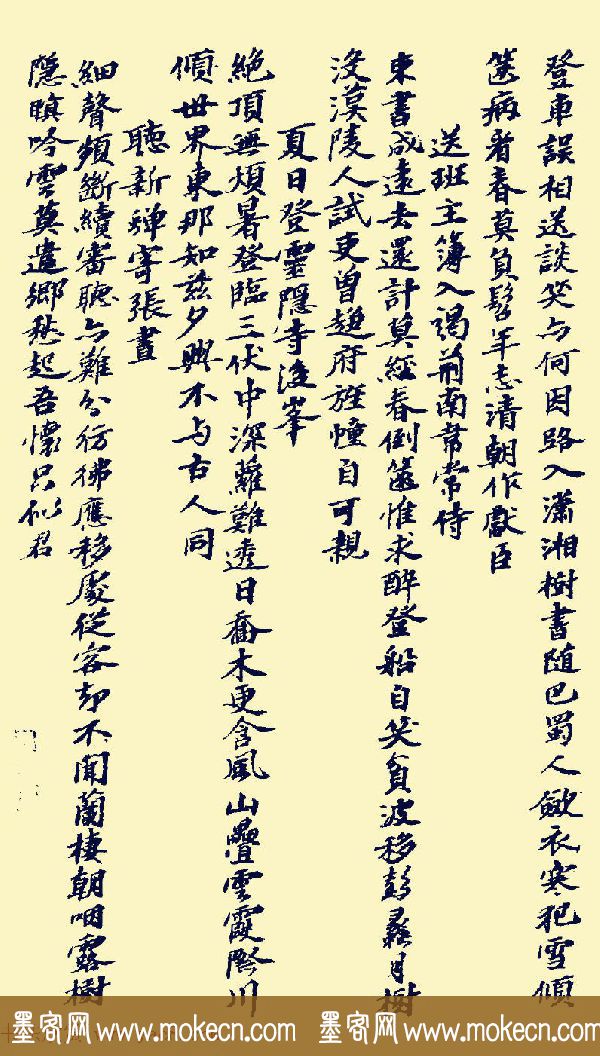 登車誤相送談笑与何因路入瀟湘樹書随巴蜀人斂衣寒犯雪傾
篋病看春莫負髫年志清朝作獻臣
送班主簿入謁荊南韋常侍
束書成遠去還計莫經春倒篋惟求醉登船自笑貧波移彭蠡月樹
没漢陵人試吏曾趨府旌幢自可親
夏日登靈隱寺後峯
絕頂無煩暑登臨三伏中深蘿難透日喬木更含風山疊雲霞際川
傾世界東那知兹夕興不与古人同
聽新蟬寄張晝
細聲頻斷續審聽亦難分彷彿應移處從容却不聞蘭棲朝咽露樹
隱暝吟雲莫遣鄉愁起吾懷只似君
墨客网 www.mokecn.com 墨客网 www.mokecn.com